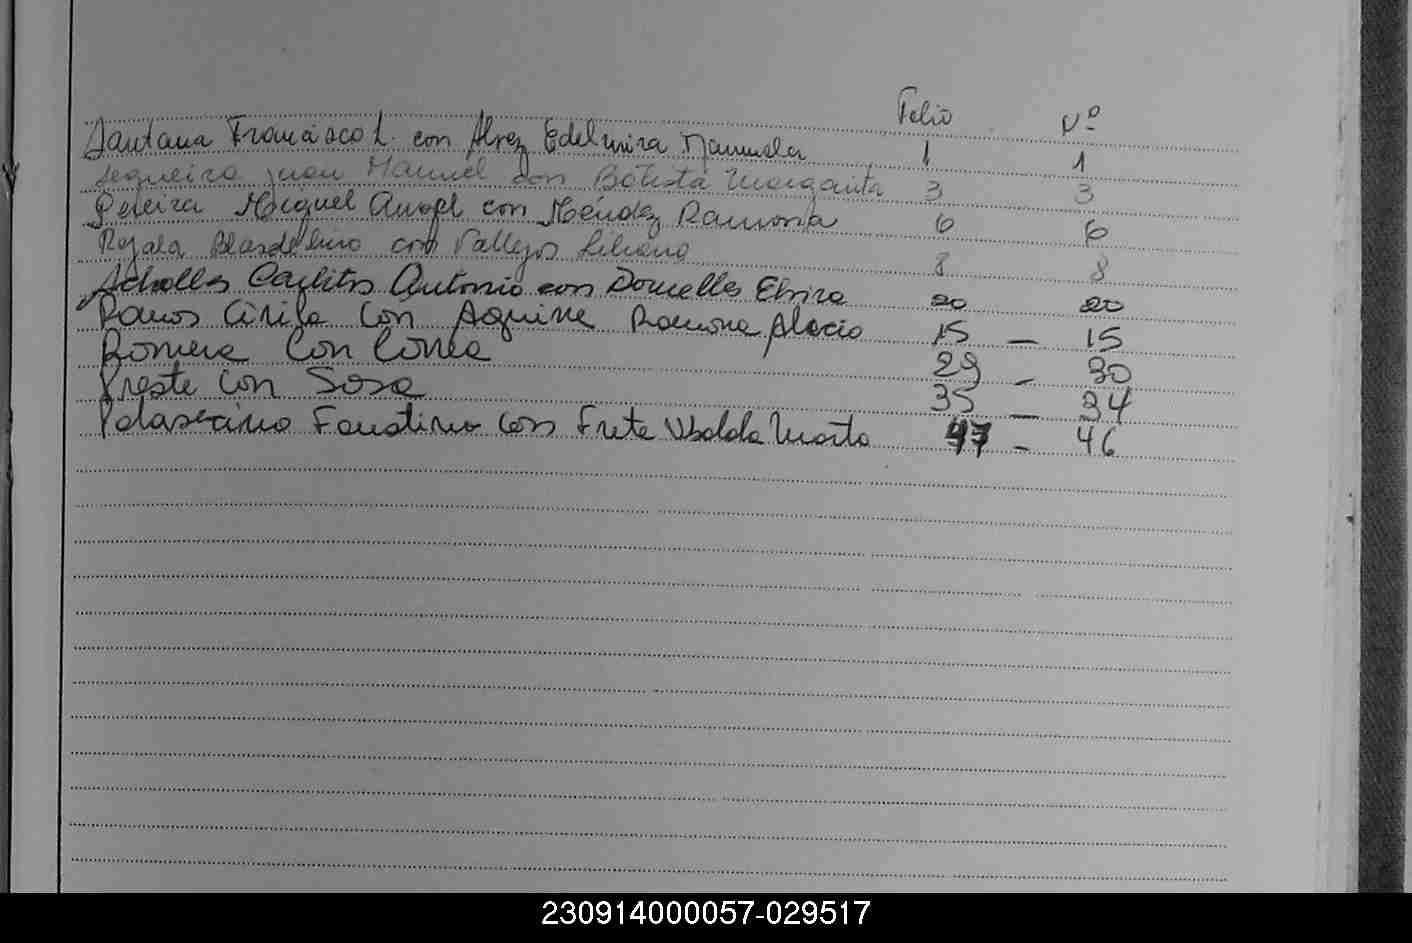 Folio Nº
Santana Francisco L. con Alvez Edelmira Manuela 1 1
Sequeira Juan Manuel con Botista Margarita 3 3
Pereira Miguel Angel con Méndez Ramona 6 6
Rojala con Vallejos Liliana 8 8
Carlitos Antonio con Dornelles Elvira 20 20
Ramos con Aguirre Ramona 15 - 15
Romera con Correa 29 - 30
Preste con Sosa 35 - 34
Faustino con Frete Ubalda Marta 47 - 46
230914000057-029517